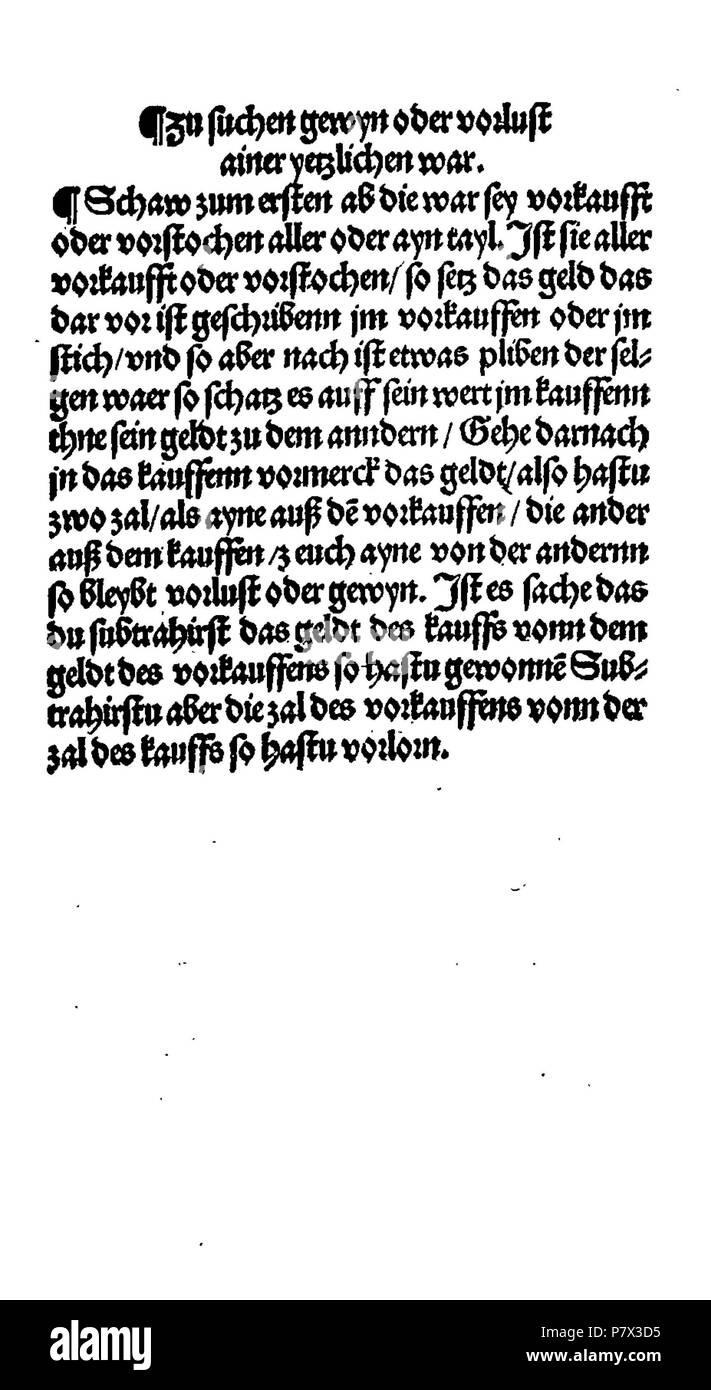 ¶Zu suchen gewyn oder vorlust
ainer yetzlichen war.
¶ Schaw zum ersten ab die war sey vorkaufft
oder vorstochen aller oder ayn tayl. Jst sie aller
vorkaufft oder vorstochen/ so setz das geld das
dar vor ist geschribenn jm vorkauffen oder jm
stich/vnd so aber nach ist etwas pliben der sel⸗
gen waer so schatz es auff sein wert jm kauffenn
thne sein geldt zu dem anndern/ Gehe darnach
jn das kauffenn vormerck das geldt/also hastu
zwo zal/als ayne auß dē vorkauffen/ die ander
auß dem kauffen/zeuch ayne von der andernn
so bleybt vorlust oder gewyn. Jst es sache das
du subtrahirst das geldt des kauffs vonn dem
geldt des vorkauffens so hastu gewonnē Sub⸗
trahirstu aber die zal des vorkauffens vonn der
zal des kauffs so hastu vorlorn.
alamy
Image ID: P7X3D5
www.alamy.com